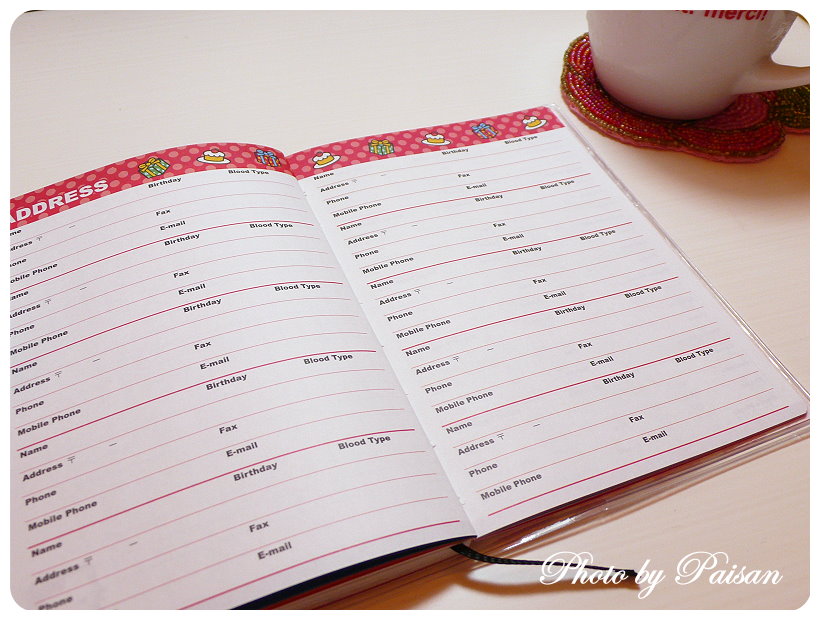 merci!
ADDRESS
Name Birthday Blood Type
Address 〒 –
Phone Fax
Mobile Phone E-mail
Name Birthday Blood Type
Address 〒 –
Phone Fax
Mobile Phone E-mail
Name Birthday Blood Type
Address 〒 –
Phone Fax
Mobile Phone E-mail
Name Birthday Blood Type
Address 〒 –
Phone Fax
Mobile Phone E-mail
Name Birthday Blood Type
Address 〒 –
Phone Fax
E-mail
Name Birthday Blood Type
Address 〒 –
Phone Fax
Mobile Phone E-mail
Name Birthday Blood Type
Address 〒 –
Phone Fax
Mobile Phone E-mail
Name Birthday Blood Type
Address 〒 –
Phone Fax
Mobile Phone E-mail
Name Birthday Blood Type
Address 〒 –
Phone Fax
Mobile Phone E-mail
Name Birthday Blood Type
Address 〒 –
Phone Fax
Mobile Phone E-mail
Photo by Paisan